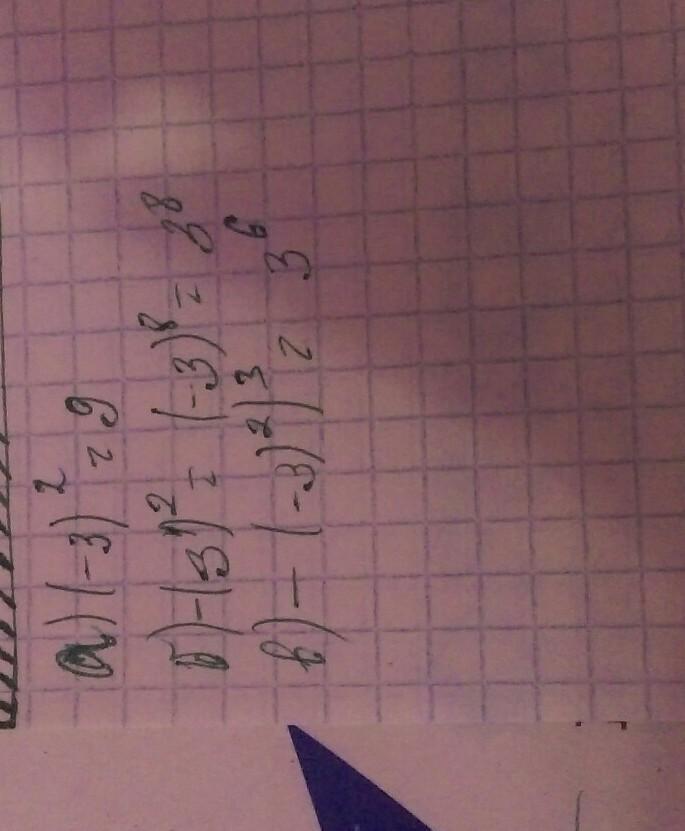 а) (-3)² = 9
б) -(3⁴)² = (-3)⁸ = 3⁸
в) - (-3)²)³ = 3⁶